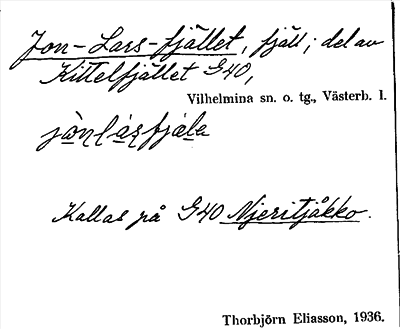 Jon-Lars-fjället, fjäll; del av
Kittelfjället G40,
Vilhelmina sn. o. tg., Västerb. l.
Kallas på G40 Njeritjåkko.
Thorbjörn Eliasson, 1936.